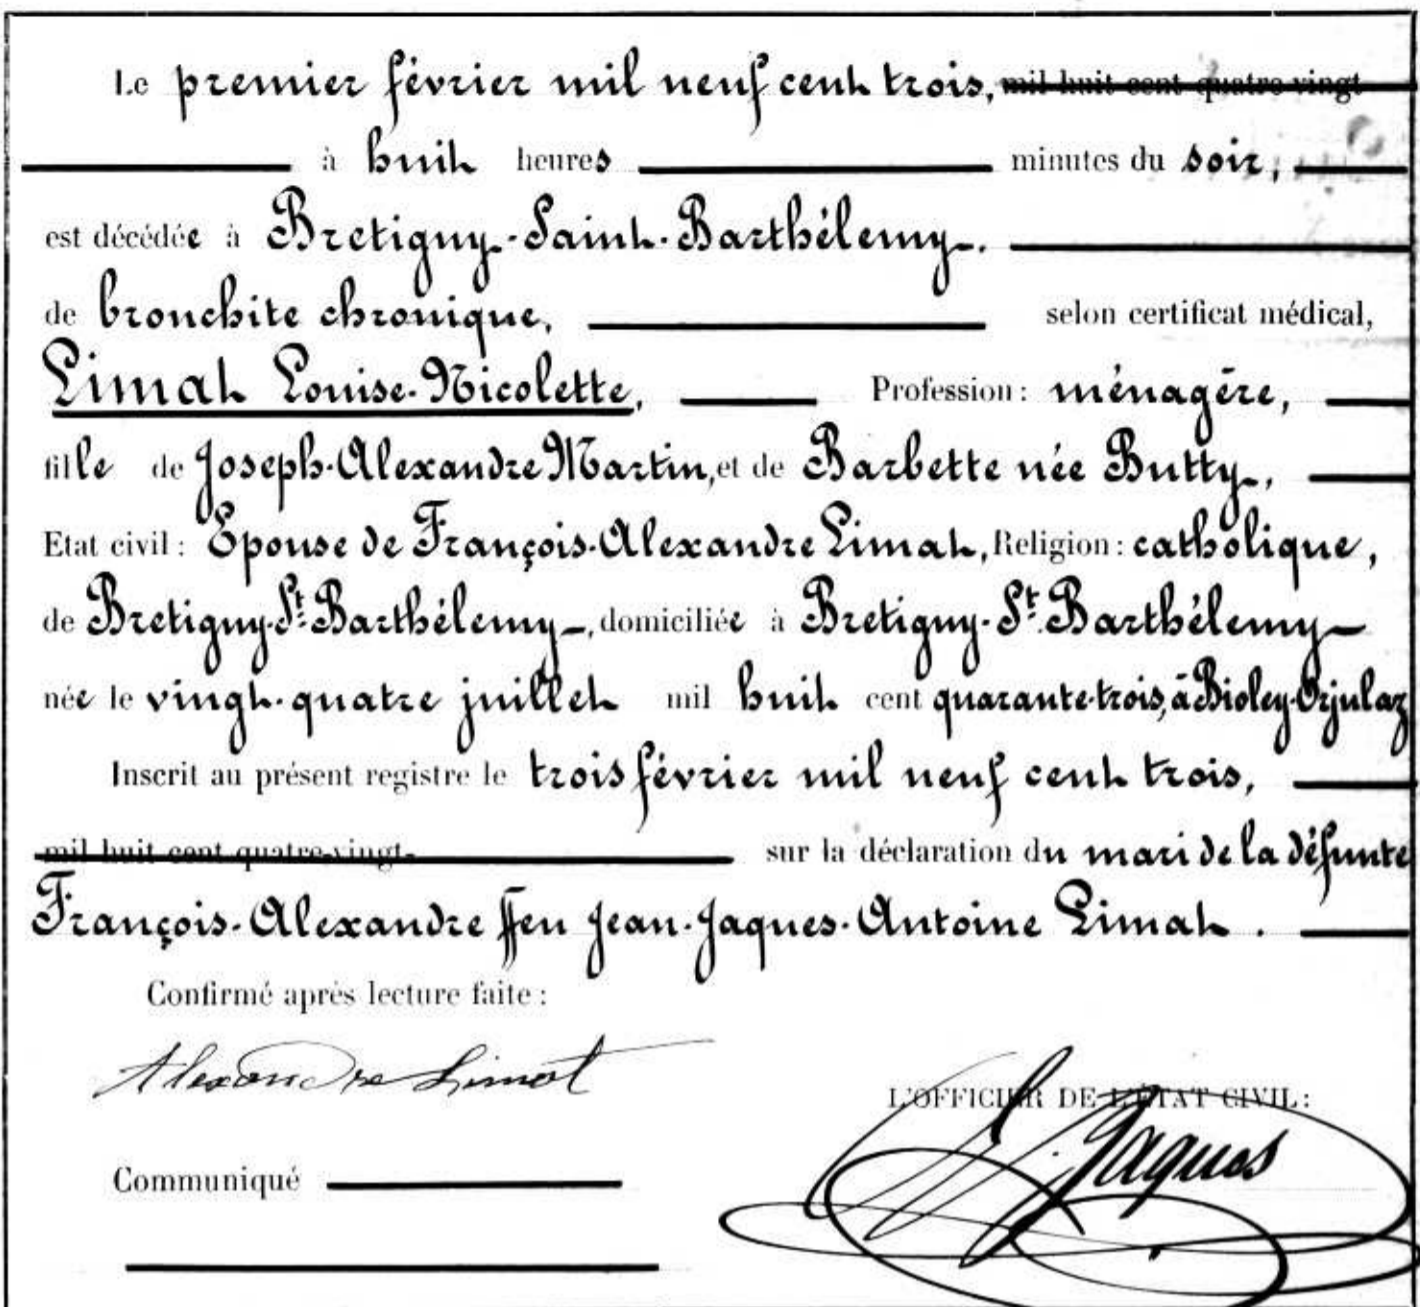 Le premier février mil neuf cent trois, mil huit cent quatre vingt
à huit heures minutes du soir,
est décédée à Bretigny-Saint-Barthélemy.
de bronchite chronique, selon certificat médical,
Limat Louise-Nicolette, Profession: ménagère,
fille de Joseph-Alexandre Martin, et de Barbette née Butty,
Etat civil: Epouse de François-Alexandre Limat, Religion: catholique,
de Bretigny-St. Barthélemy, domiciliée à Bretigny-St. Barthélemy
née le vingt-quatre juillet mil huit cent quarante-trois, à Bioley-Orjulaz
Inscrit au présent registre le trois février mil neuf cent trois,
mil huit cent quatre-vingt- sur la déclaration du mari de la défunte
François-Alexandre ffeu Jean-Jaques-Antoine Limat.
Confirmé après lecture faite:
Alexandre Limat
L'OFFICIER DE L'ÉTAT CIVIL:
Jaques
Communiqué